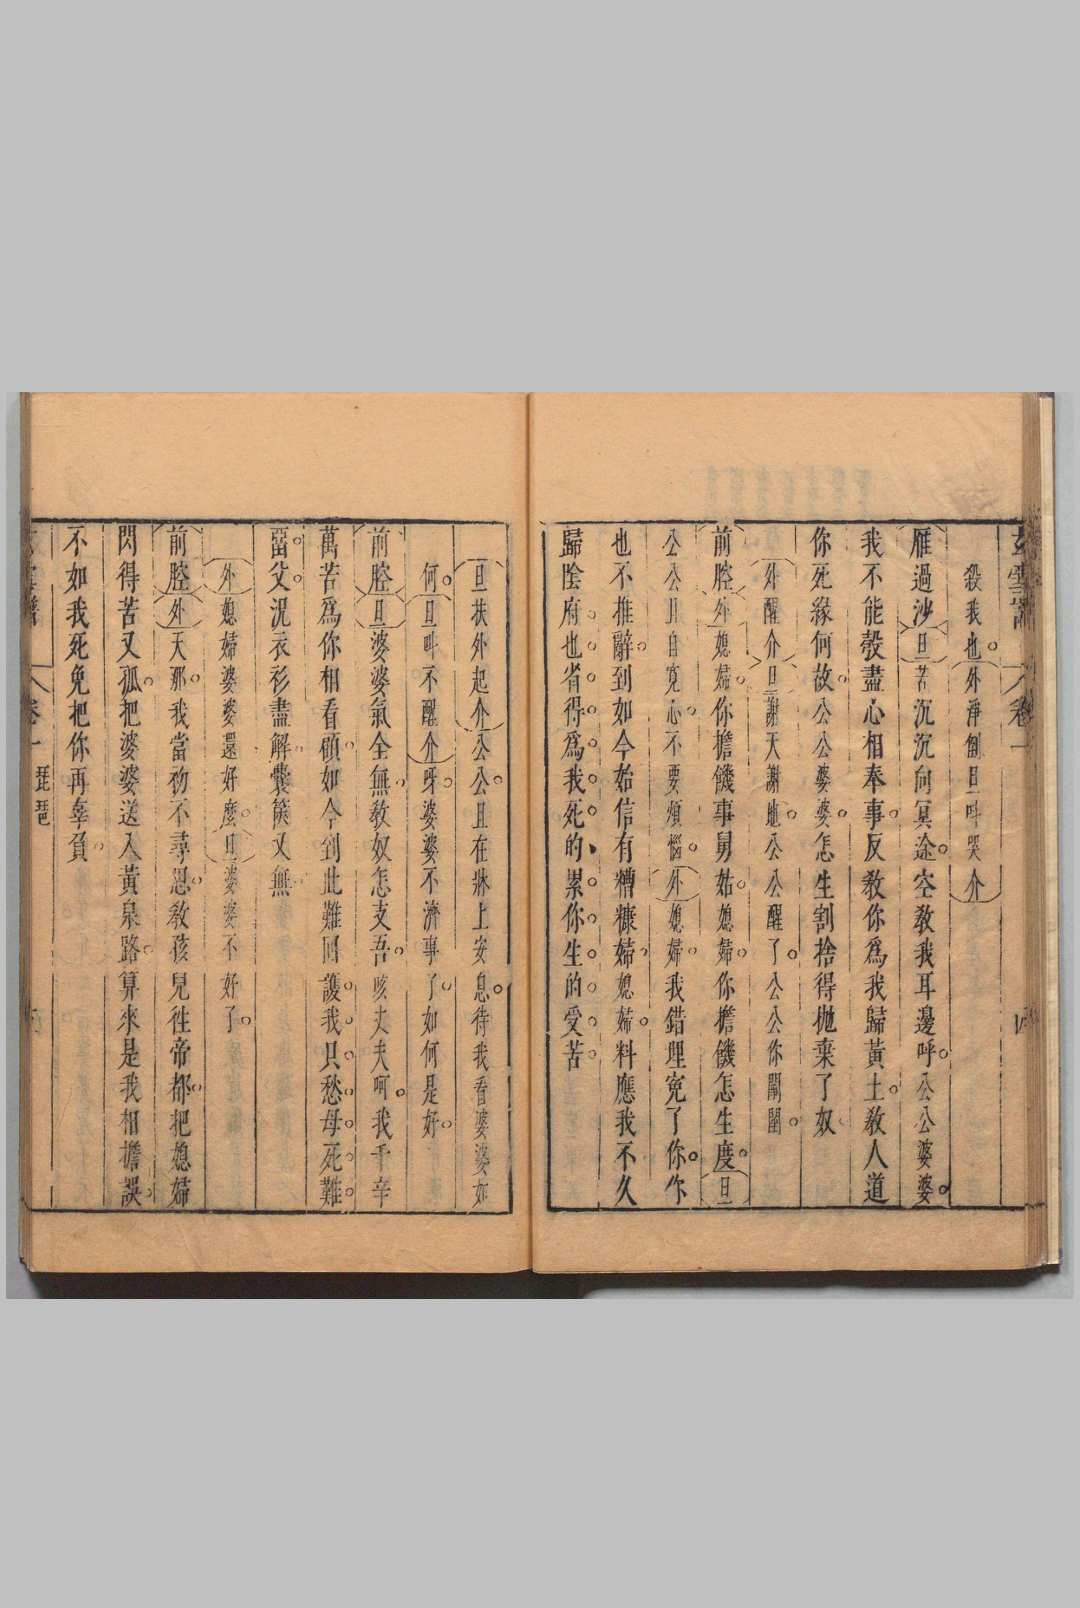 殺我也外淨倒旦叫哭介
雁過沙旦苦沉沉向冥途空教我耳邊呼公公婆婆
我不能彀盡心相奉事反教你爲我歸黃土教人道
你死緣何故公公婆婆怎生割捨得拋棄了奴
外醒介旦謝天謝地公公醒了公公你闌闥
前腔外媳婦你擔饑事舅姑媳婦你擔饑怎生度旦
公公且自寬心不要煩惱外媳婦我錯埋寃了你你
也不推辭到如今始信有糟糠婦媳婦料應我不久
歸陰府也省得爲我死的累你生的受苦
旦扶外起介公公且在牀上安息待我看婆婆如
何旦叫不醒介呀婆婆不濟事了如何是好
前腔旦婆婆氣全無教奴怎支吾咳丈夫呵我千辛
萬苦爲你相看顧如今到此難回護我只愁母死難
畱父況衣衫盡解囊篋又無
外媳婦婆婆還好麽旦婆婆不好了
前腔外天那我當初不尋思教孩兒徃帝都把媳婦
閃得苦又孤把婆婆送入黃泉路算來是我相擔誤
不如我死免把你再辜負
卷一 琵琶